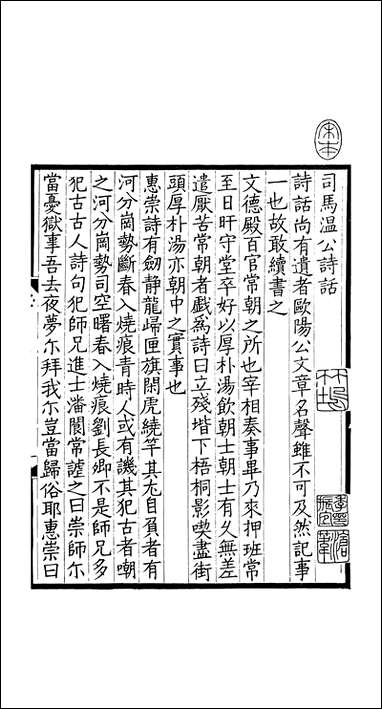 宋本
司馬温公詩話
詩話尚有遺者歐陽公文章名聲雖不可及然記事
一也故敢續書之
文德殿百官常朝之所也宰相奏事畢乃來押班常
至日旰守堂卒好以厚朴湯飲朝士朝士有久無差
遣厭苦常朝者戲爲詩曰立殘堦下梧桐影喫盡街
頭厚朴湯亦朝中之實事也
惠崇詩有劒静龍歸匣旗閑虎繞竿其尤自負者有
河分崗勢斷春入燒痕青時人或有譏其犯古者嘲
之河分崗勢司空曙春入燒痕劉長卿不是師兄多
犯古古人詩句犯師兄進士潘閬常謔之曰崇師尓
當憂獄事吾去夜夢尓拜我尓豈當歸俗耶惠崇曰